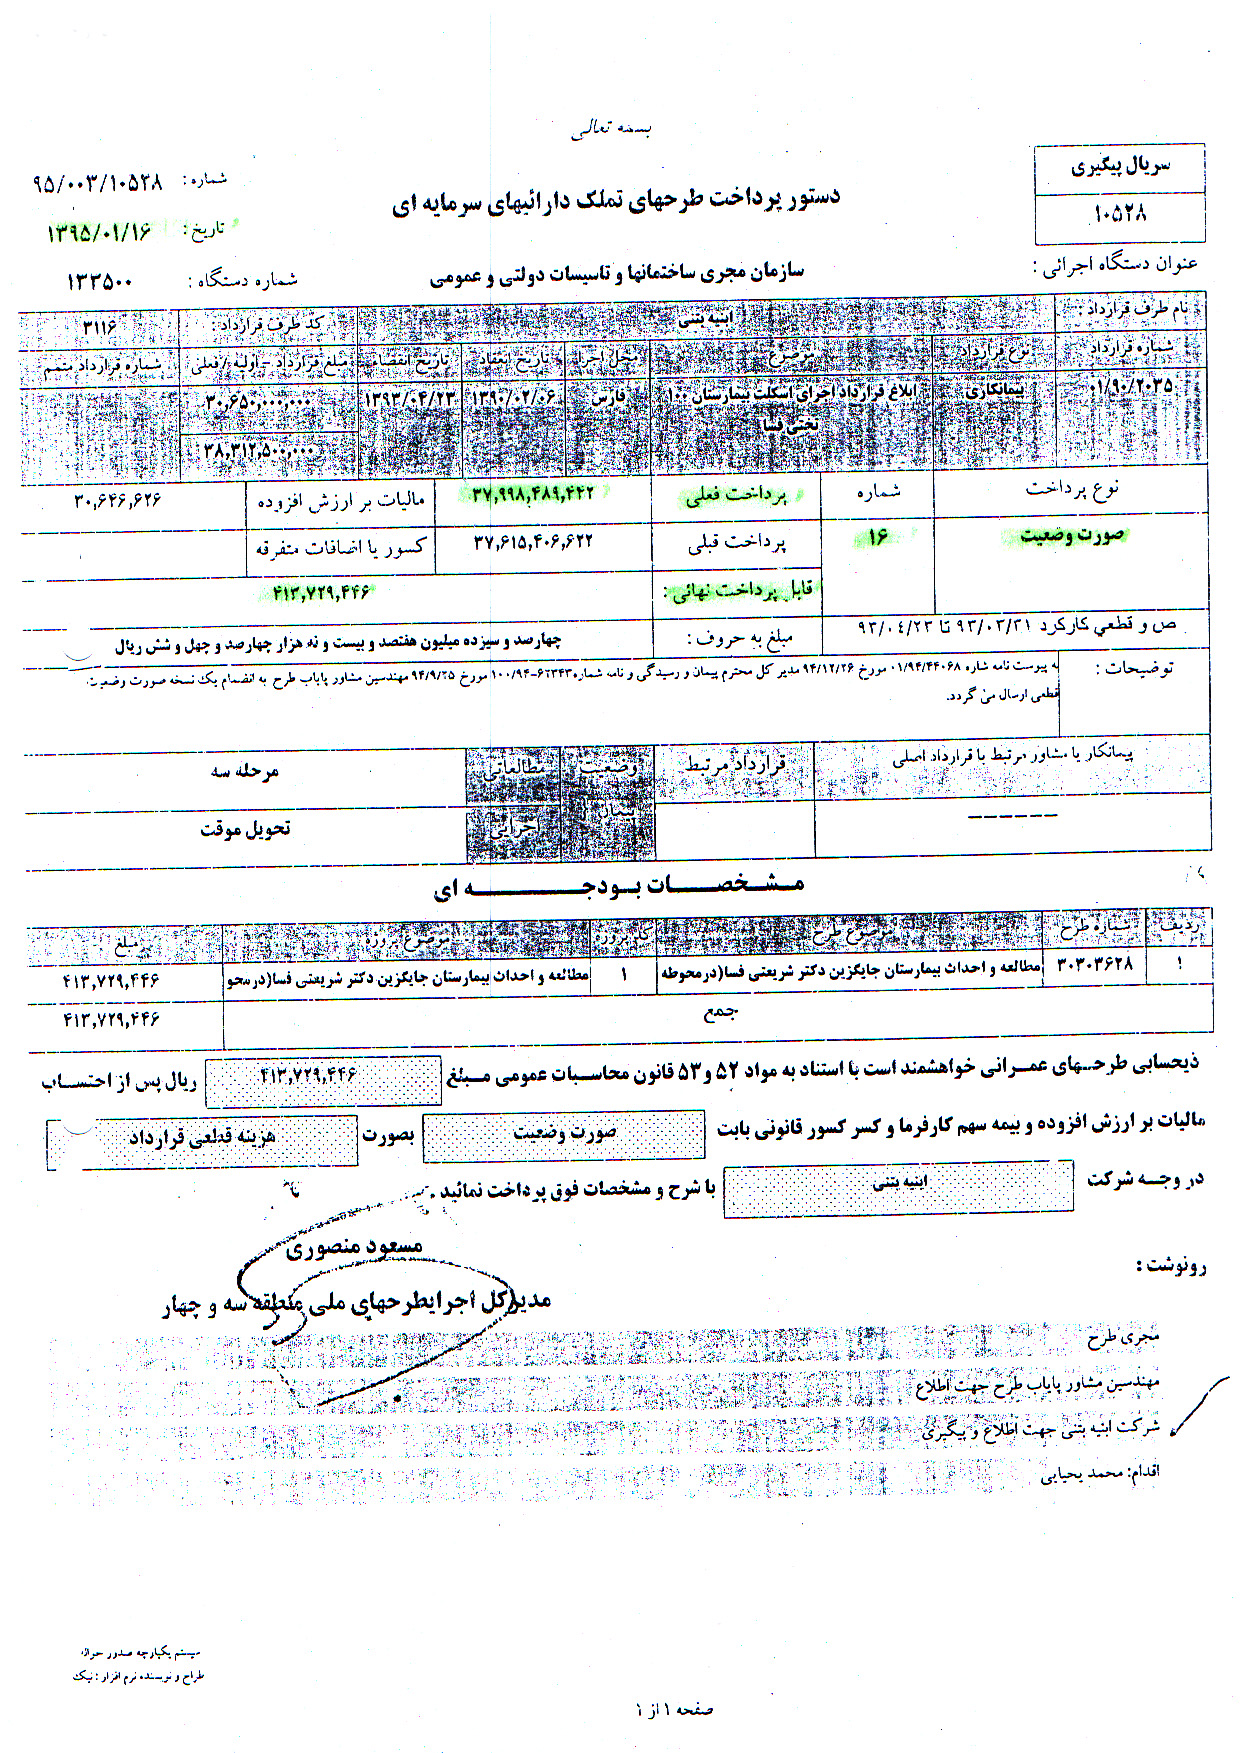 بسمه تعالی
سریال پیگیری
۱۰۵۲۸
دستور پرداخت طرحهای تملک دارائیهای سرمایه ای
شماره: ۹۵/۰۰۳/۱۰۵۲۸
تاریخ: ۱۳۹۵/۰۱/۱۶
عنوان دستگاه اجرائی: سازمان مجری ساختمانها و تاسیسات دولتی و عمومی شماره دستگاه: ۱۳۳۵۰۰
نام طرف قرارداد: ابنیه بتنی کد طرف قرارداد: ۳۱۱۶
شماره قرارداد نوع قرارداد موضوع محل اجرا تاریخ انعقاد تاریخ انقضاء مبلغ قرارداد - اولیه / فعلی شماره قرارداد متمم
۰۱/۹۰/۲۰۳۵ پیمانکاری ابلاغ قرارداد اجرای اسکلت بیمارستان ۱۰۰ تختی فسا فارس ۱۳۹۰/۰۲/۰۶ ۱۳۹۳/۰۴/۲۳ ۳۰,۶۵۰,۰۰۰,۰۰۰
۳۸,۳۱۲,۵۰۰,۰۰۰
نوع پرداخت شماره پرداخت فعلی ۳۷,۹۹۸,۴۸۹,۴۴۲ مالیات بر ارزش افزوده ۳۰,۶۴۶,۶۲۶
صورت وضعیت ۱۶ پرداخت قبلی ۳۷,۶۱۵,۴۰۶,۶۲۲ کسور یا اضافات متفرقه
قابل پرداخت نهائی: ۴۱۳,۷۲۹,۴۴۶
ص و قطعي کارکرد ۹۳/۰۳/۳۱ تا ۹۳/۰۴/۲۳ مبلغ به حروف: چهارصد و سیزده میلیون هفتصد و بیست و نه هزار چهارصد و چهل و شش ریال
توضیحات: به پیوست نامه شماره ۰۱/۹۴/۴۴۰۶۸ مورخ ۹۴/۱۲/۲۶ مدیر کل محترم پیمان و رسیدگی و نامه شماره ۱۰۰/۹۴-۶۲۳۴۳ مورخ ۹۴/۹/۲۵ مهندسین مشاور پایاب طرح به انضمام یک نسخه صورت وضعیت
قطعی ارسال می گردد.
پیمانکار یا مشاور مرتبط با قرارداد اصلی قرارداد مرتبط وضعیت پیمان مطالعاتی مرحله سه
------ اجرایی تحویل موقت
مشخصات بودجه ای
ردیف شماره طرح موضوع طرح کد پروژه موضوع پروژه مبلغ
۱ ۳۰۳۰۳۶۲۸ مطالعه و احداث بیمارستان جایگزین دکتر شریعتی فسا(در محوطه ۱ مطالعه و احداث بیمارستان جایگزین دکتر شریعتی فسا(در محو ۴۱۳,۷۲۹,۴۴۶
جمع ۴۱۳,۷۲۹,۴۴۶
ذیحسابی طرحهای عمرانی خواهشمند است با استناد به مواد ۵۲ و ۵۳ قانون محاسبات عمومی مبلغ ۴۱۳,۷۲۹,۴۴۶ ریال پس از احتساب
مالیات بر ارزش افزوده و بیمه سهم کارفرما و کسر کسور قانونی بابت صورت وضعیت بصورت هزینه قطعی قرارداد
در وجه شرکت ابنیه بتنی با شرح و مشخصات فوق پرداخت نمائید.
مسعود منصوری
رونوشت:
مدیرکل اجرایطرحهای ملی منطقه سه و چهار
مجری طرح
مهندسین مشاور پایاب طرح جهت اطلاع
شرکت ابنیه بتنی جهت اطلاع و پیگیری
اقدام: محمد یحیایی
سیستم یکپارچه صدور حواله
طراح و نویسنده نرم افزار: نیک
صفحه ۱ از ۱